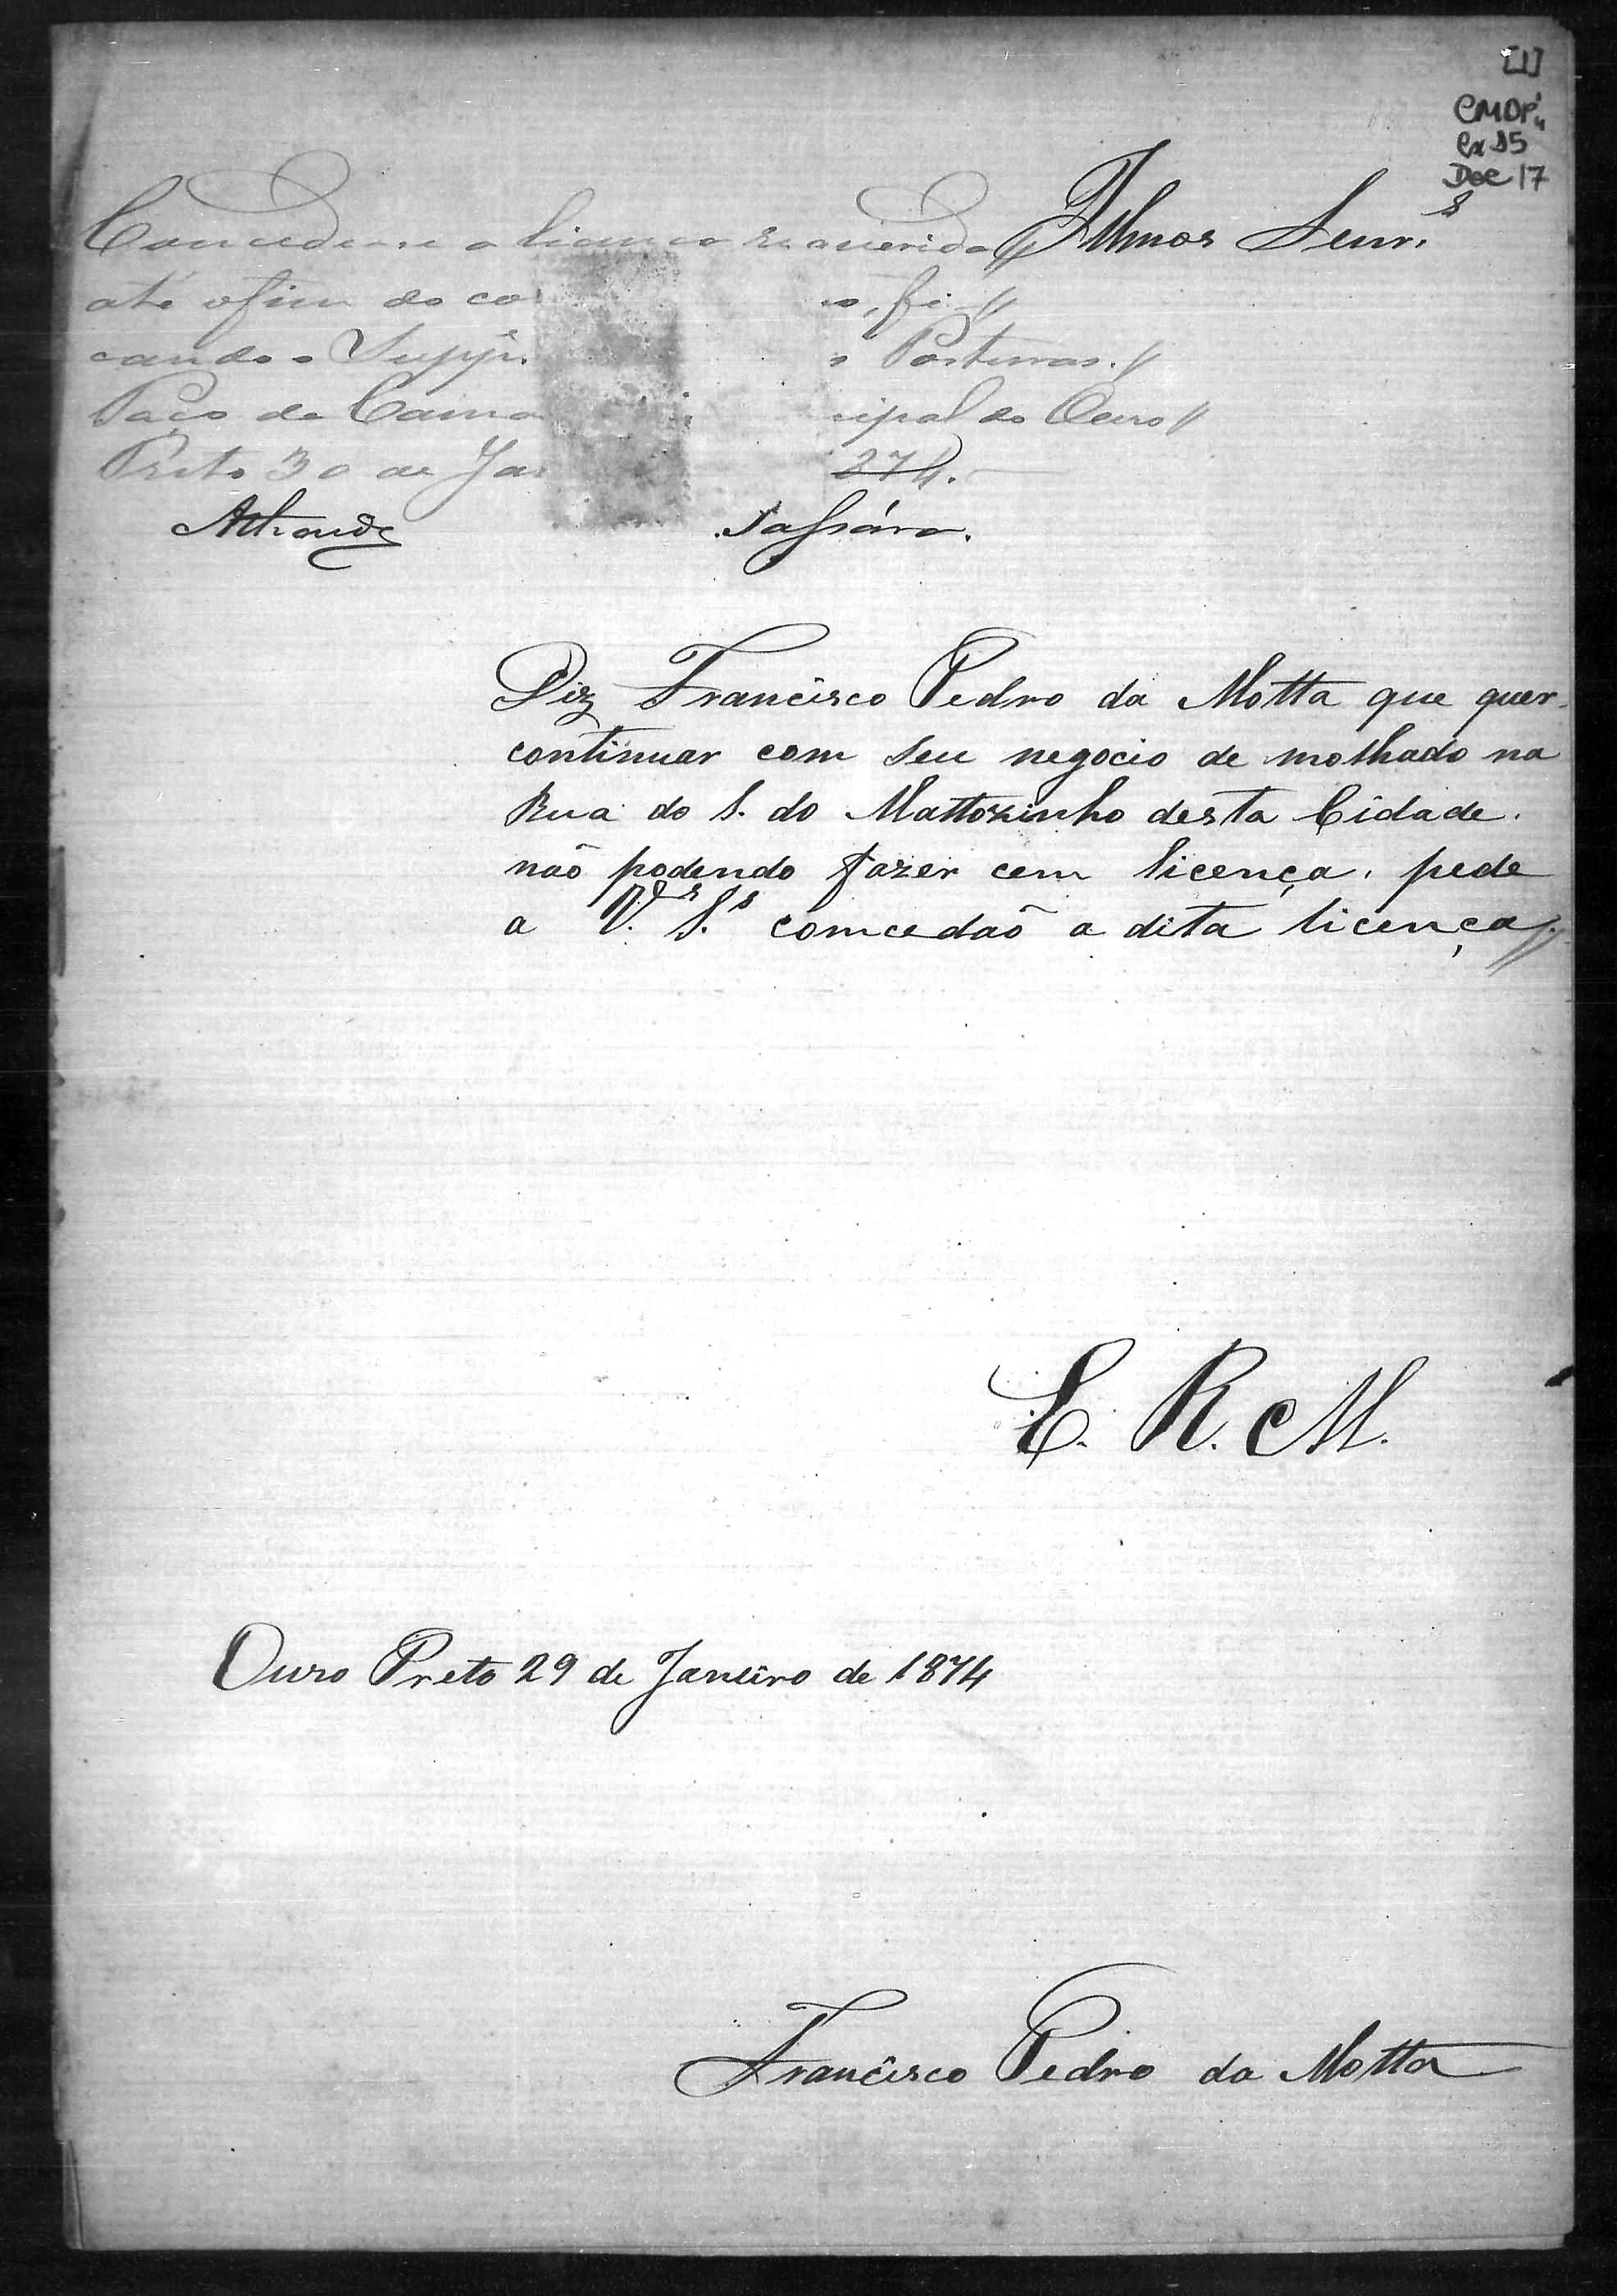 [1]
CMOP
Cx 15
Doc 17
Illmos Senr.s
Concede-se a licença requerida //
até o fim do co o, fi //
cando o Supp. s Posturas. //
Paço da Cama cipal do Ouro //
Preto 30 de Ja 274.
Diz Francisco Pedro da Motta que quer
continuar com seu negocio de molhado na
Rua do S. do Mattozinho desta Cidade.
não podendo fazer cem licença. pede
a V.as S.as comcedaõ a dita licença. //
E. R. M.
Ouro Preto 29 de Janeiro de 1874
Francisco Pedro da Motta